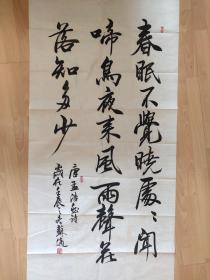 春眠不覺曉處々聞
啼鳥夜來風雨聲花
落知多少
唐孟浩然詩
歲在